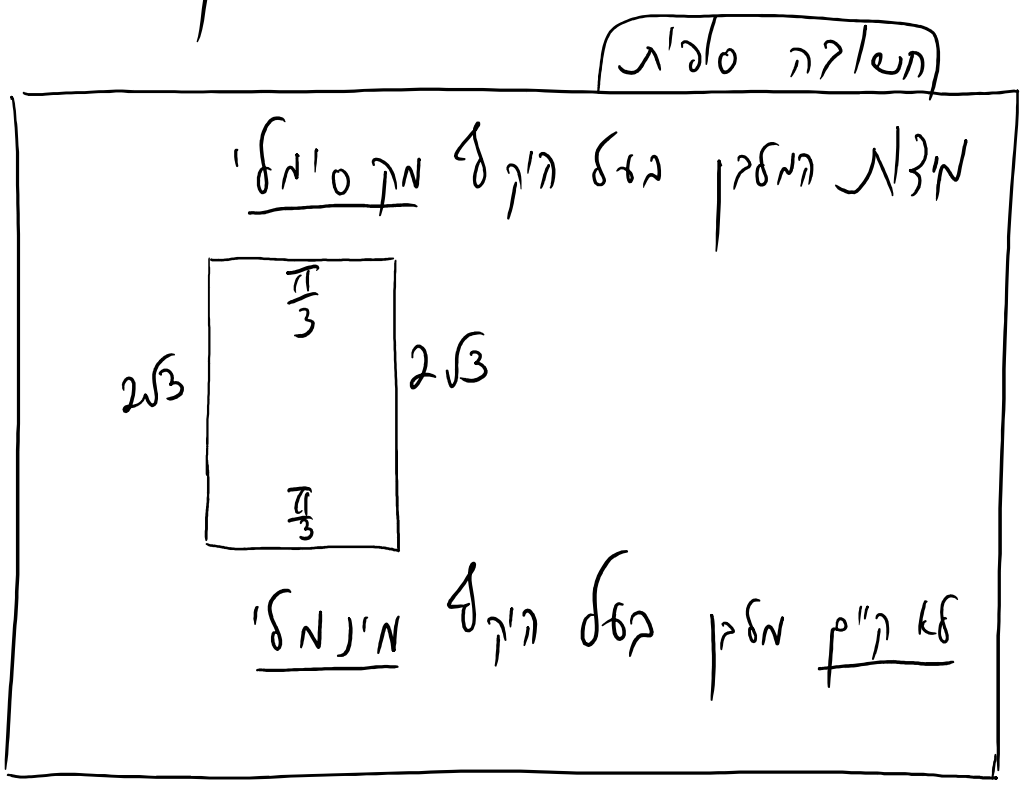 תשובה סופית
מידות המלבן בעל היקף מקסימלי
π/3
2√3 2√3
π/3
לא קיים מלבן בעל היקף מינמלי